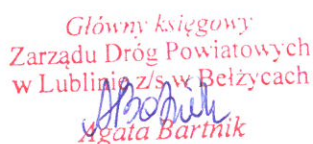 Główny księgowy
Zarządu Dróg Powiatowych
w Lublinie z/s w Bełżycach
Agata Bartnik